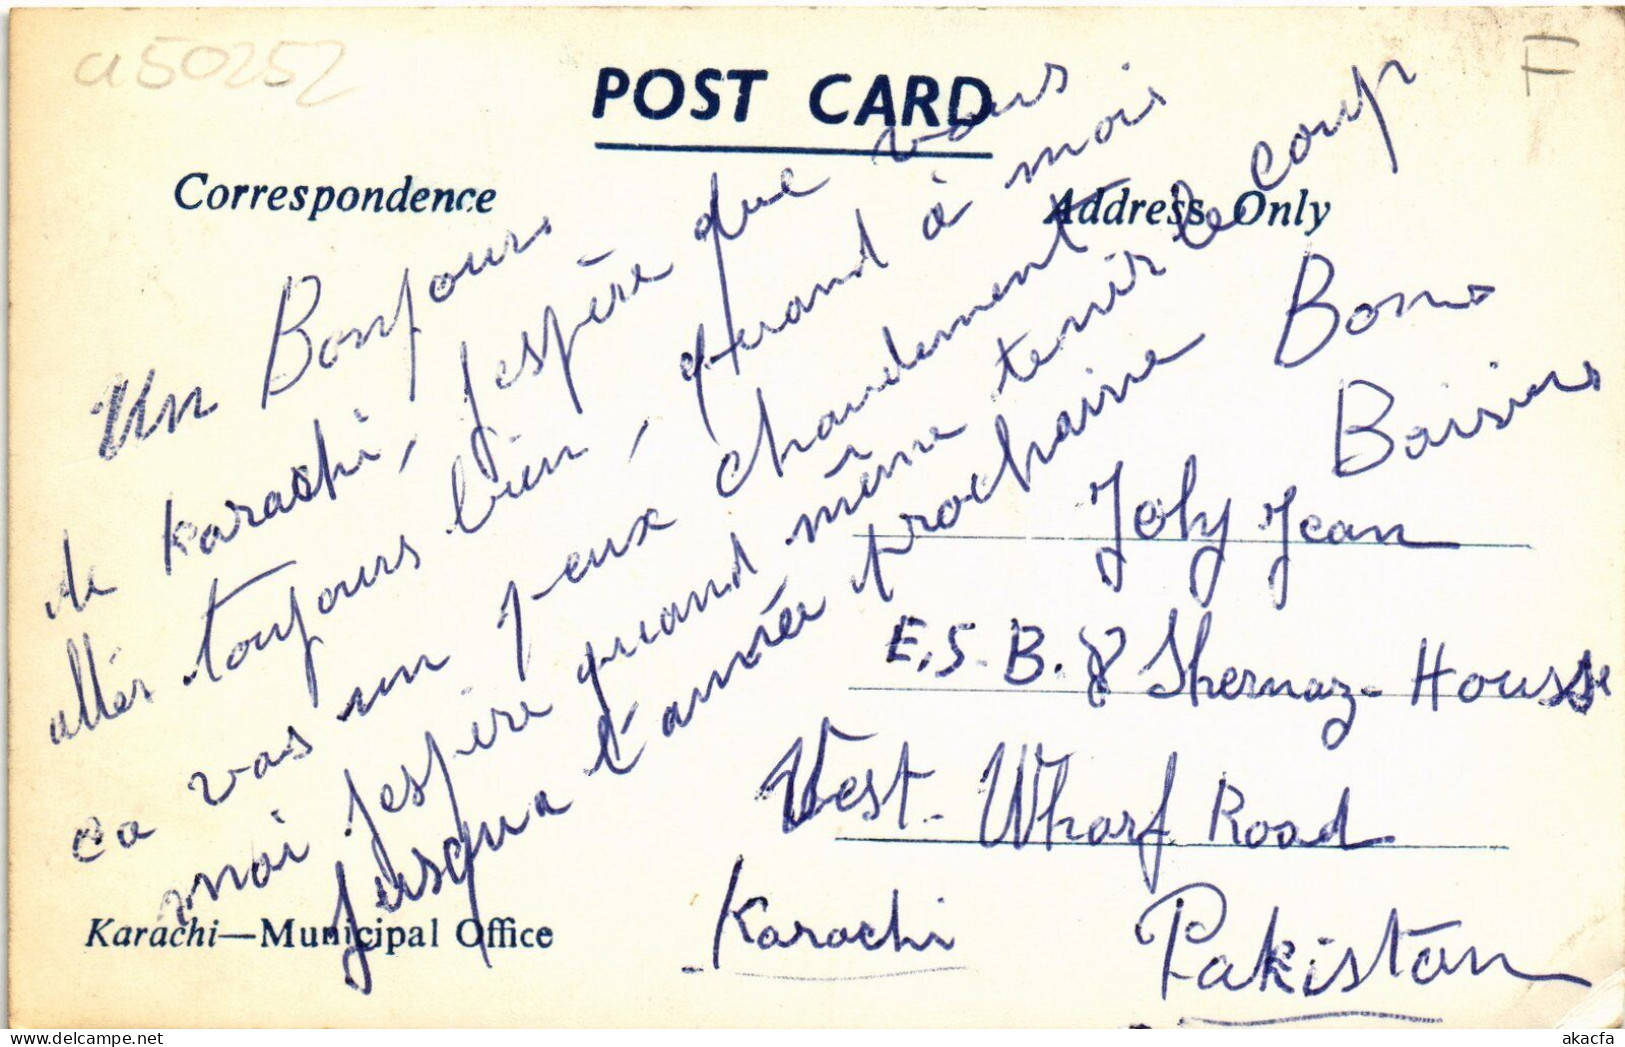 a50252
F
POST CARD
Correspondence
Address Only
Un Bonjours
de Karachi, j'espère que vous
allés toujours bien, quand à mois
ca vas un peux chaudement
moi j'espère quand même tenir le coup
jusqu'a l'année prochaine Bons
Baisius
Joly Jean
E.S.B. 8 Shernaz-House
West-Wharf Road
Karachi
Pakistan
Karachi—Municipal Office
akacfa